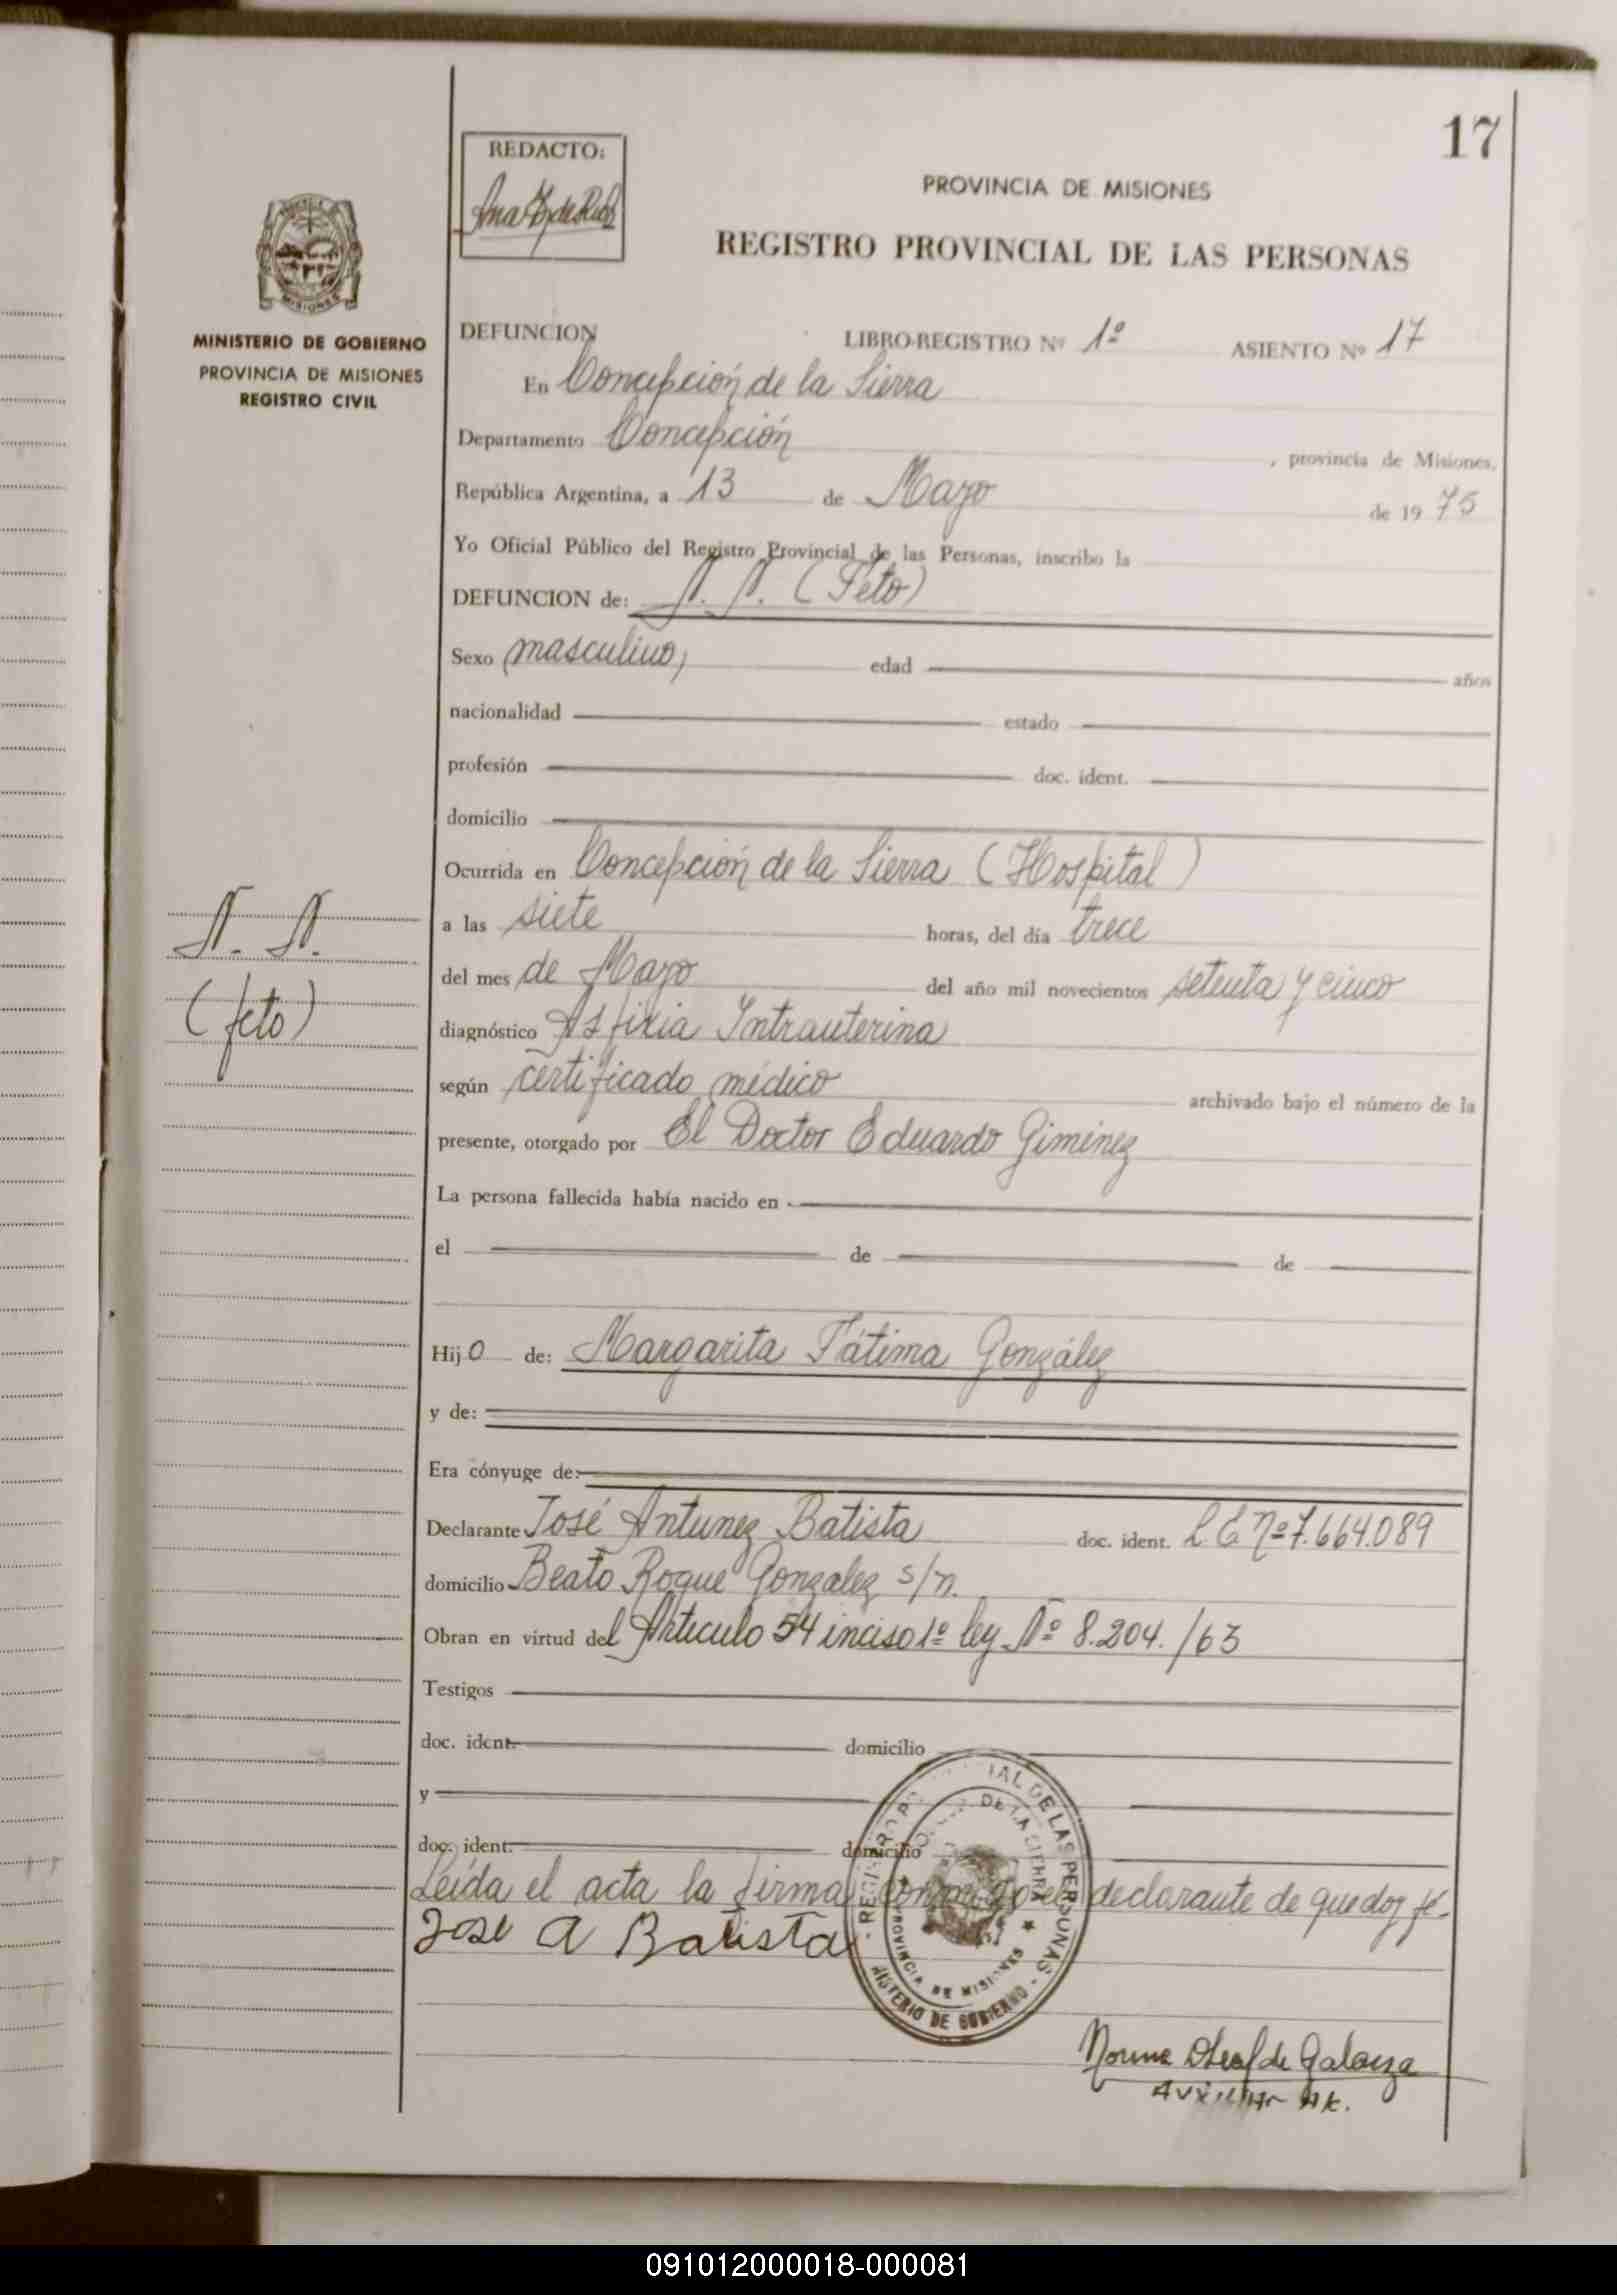 17
REDACTO:
PROVINCIA DE MISIONES
REGISTRO PROVINCIAL DE LAS PERSONAS
MISIONES
MINISTERIO DE GOBIERNO
PROVINCIA DE MISIONES
REGISTRO CIVIL
DEFUNCION LIBRO-REGISTRO Nº 1º ASIENTO Nº 17
En Concepción de la Sierra
Departamento Concepción , provincia de Misiones.
República Argentina, a 13 de Mayo de 19 75
Yo Oficial Público del Registro Provincial de las Personas, inscribo la
DEFUNCION de: N. N. (Feto)
Sexo masculino, edad años
nacionalidad estado
profesión doc. ident.
domicilio
Ocurrida en Concepción de la Sierra (Hospital)
a las siete horas, del día trece
del mes de Mayo del año mil novecientos setenta y cinco
diagnóstico Asfixia Intrauterina
según certificado médico archivado bajo el número de la
presente, otorgado por El Doctor Eduardo Giminez
La persona fallecida había nacido en
el de de
Hijo de: Margarita Fátima González
y de:
Era cónyuge de:
Declarante José Antunez Batista doc. ident. L.E. Nº 7.664.089
domicilio Beato Roque Gonzalez s/n.
Obran en virtud del Articulo 54 inciso 1º ley Nº 8.204./63
Testigos
doc. ident. domicilio
y
doc. ident. domicilio
Leída el acta la firma conmigo el declarante de que doy fé-
Jose A Batista
N. N.
(feto)
IAL DE LAS PERSONAS
DE LA SIERRA
PROVINCIA DE MISIONES
MINISTERIO DE GOBIERNO
Auxiliar
091012000018-000081